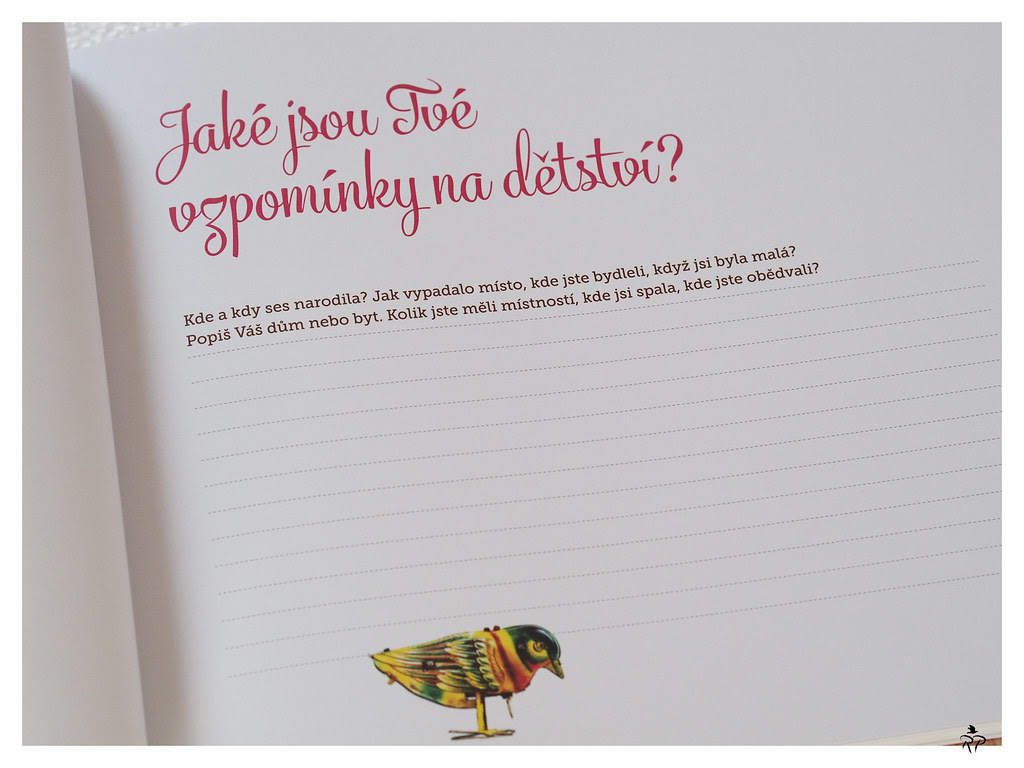 Jaké jsou Tvé
vzpomínky na dětství?
Kde a kdy ses narodila? Jak vypadalo místo, kde jste bydleli, když jsi byla malá?
Popiš Váš dům nebo byt. Kolik jste měli místností, kde jsi spala, kde jste obědvali?
RP